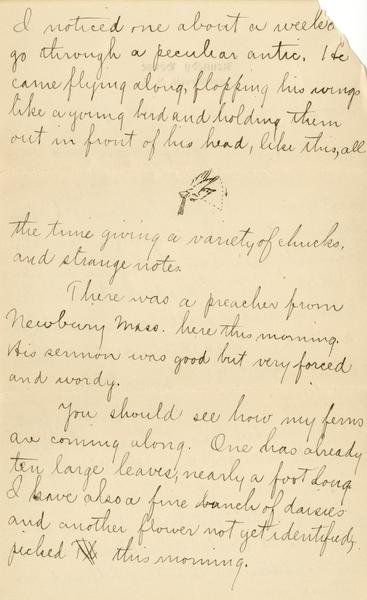 I noticed one about a week a
go through a peculiar antic. He
came flying along, flopping his wings
like a young bird and holding them
out in front of his head, like this, all
the time giving a variety of chucks,
and strange notes.
There was a preacher from
Newbury Mass. here this morning.
His sermon was good but very forced
and wordy.
You should see how my ferns
are coming along. One has already
ten large leaves, nearly a foot long
I have also a fine bunch of daisies
and another flower not yet identified,
picked this morning.